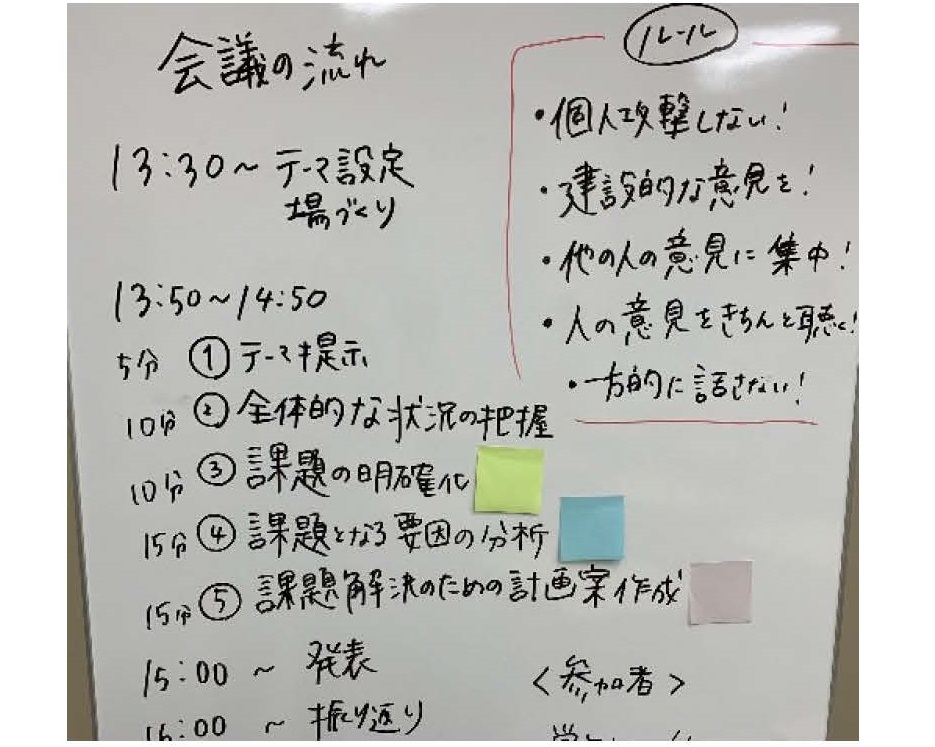 会議の流れ
13:30～テーマ設定
場づくり
13:50～14:50
5分 ①テーマ提示
10分 ②全体的な状況の把握
10分 ③課題の明確化
15分 ④課題となる要因の分析
15分 ⑤課題解決のための計画案作成
15:00 ～ 発表
16:00 ～ 振り返り
ルール
・個人攻撃しない!
・建設的な意見を!
・他の人の意見に集中!
・人の意見をきちんと聴く!
・一方的に話さない!
<参加者>